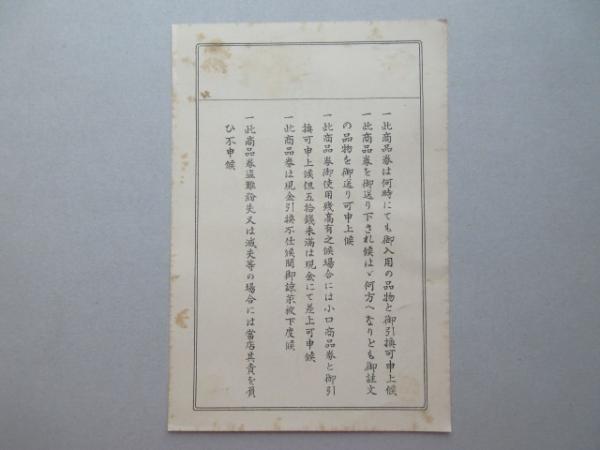 一此商品券は何時にても御入用の品物と御引換可申上候
一此商品券を御送り下され候はゞ何方へなりとも御註文
の品物を御送り可申上候
一此商品券御使用残高有之候場合には小口商品券と御引
換可申上候但五拾錢未滿は現金にて差上可申候
一此商品券は現金引換不仕候間御諒菜被下度候
一此商品券盗難紛失又は滅失等の場合には當店其責を負
ひ不申候